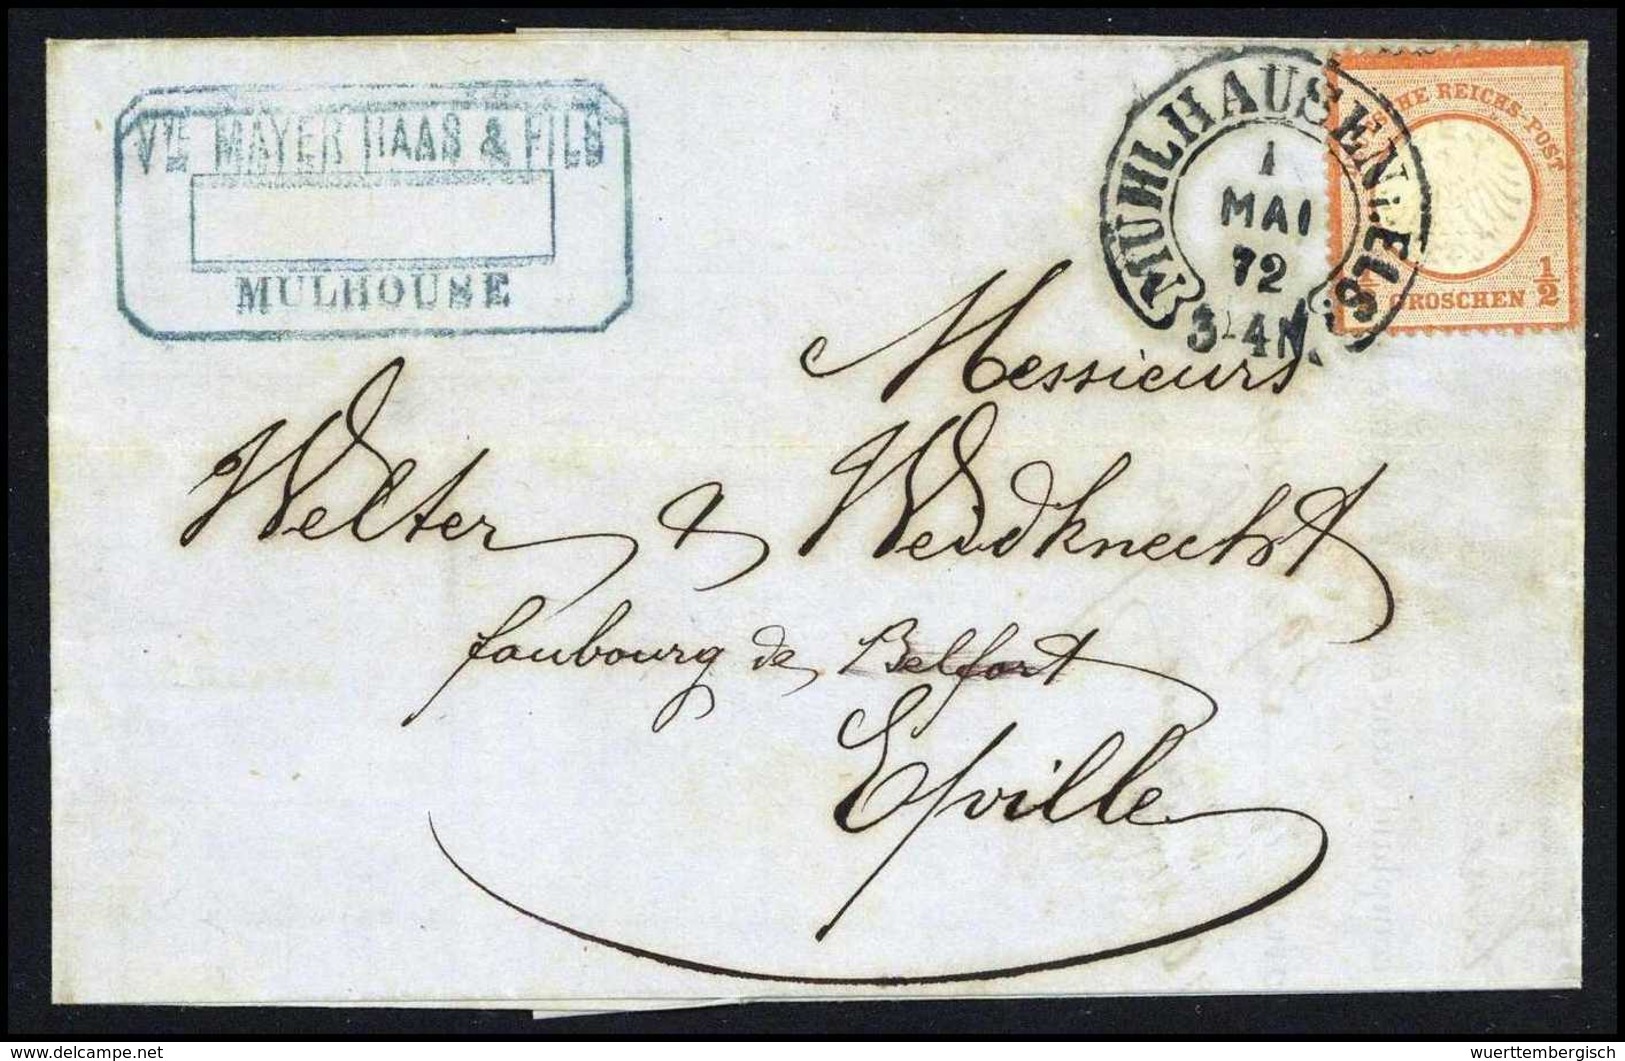 Vve MAYER HAAS & FILS
MULHOUSE
MÜHLHAUSEN i. ELS
1
MAI
72
3-4N.
HE REICHS-POST
1/2
GROSCHEN
Messieurs
Welter & Weidknecht
faubourg de Belfort
E/ville
delcampe.net
wuerttembergisch